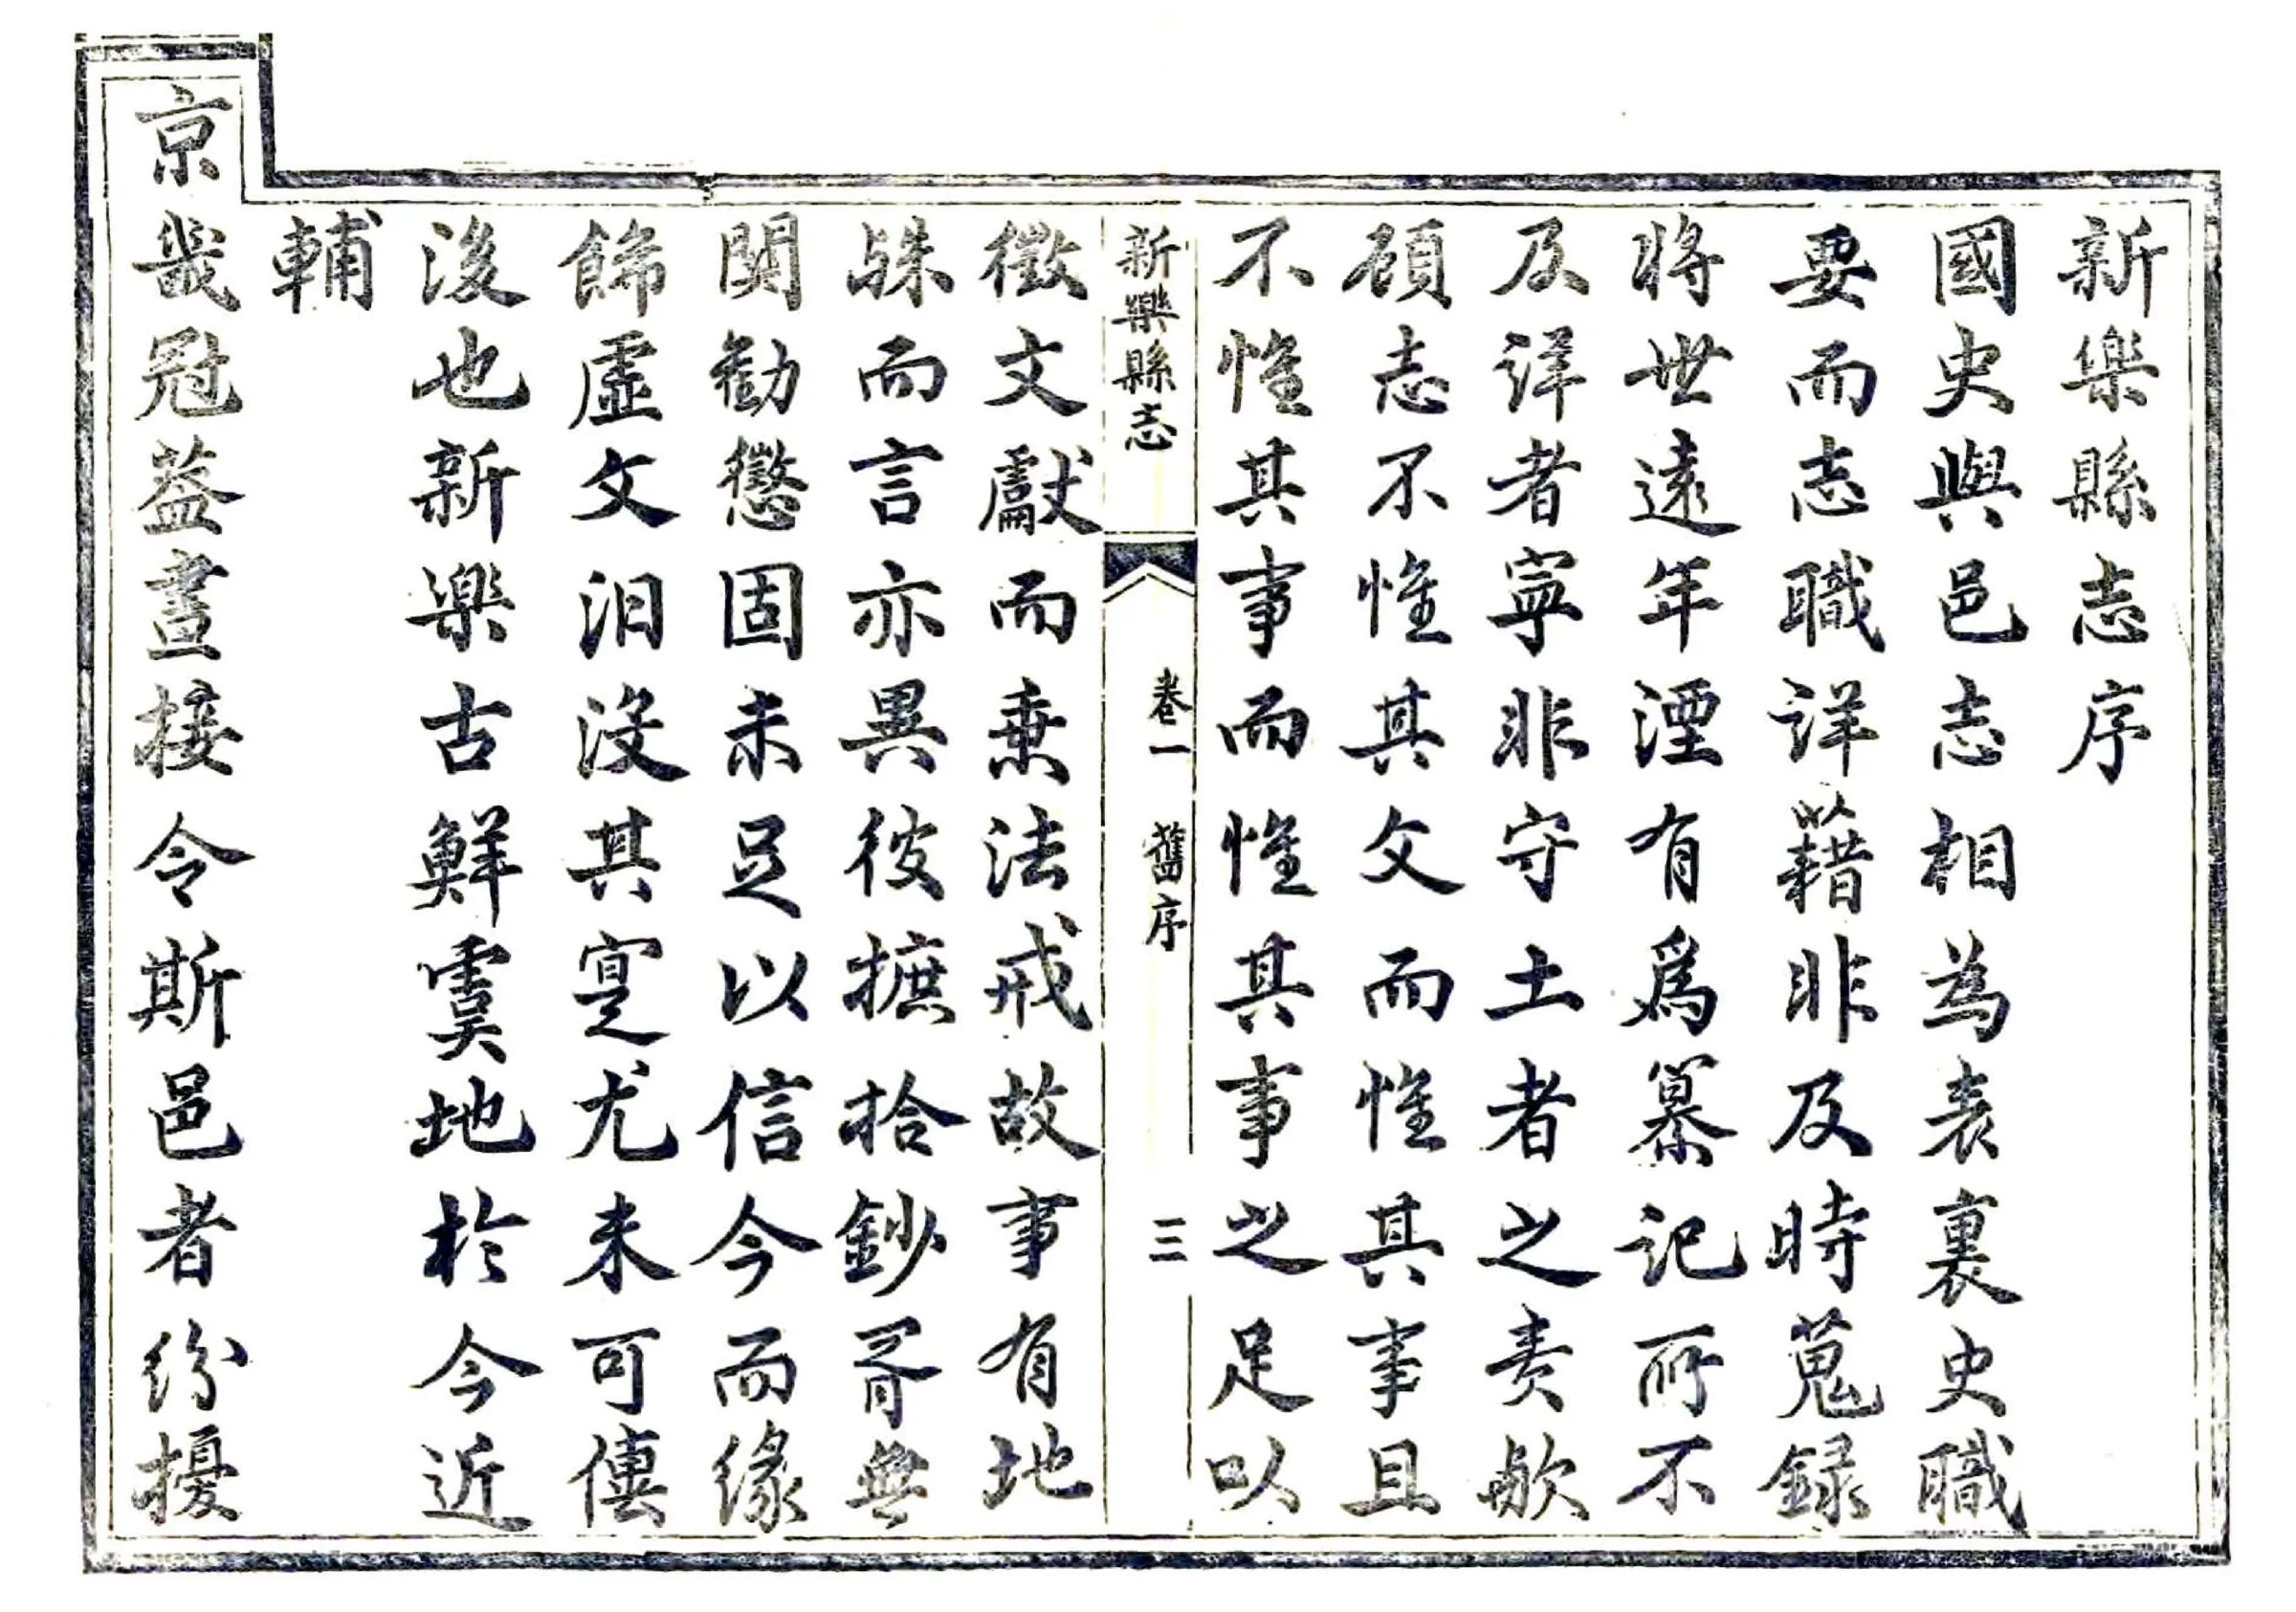 新樂縣志序
國史與邑志相為表裏史職
要而志職詳藉非及時蒐録
將世遠年湮有爲纂記所不
及詳者寧非守土者之责歟
顧志不惟其文而惟其事且
不惟其事而惟其事之足以
新樂縣志
卷一
舊序
三
徵文獻而垂法戒故事有地
殊而言亦異彼摭拾鈔胥無
関勸懲固未足以信今而缘
餙虛文汩没其寔尤未可傳
後也新樂古鮮虞地於今近
輔
京畿冠葢晝接令斯邑者紛擾